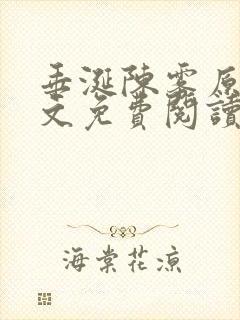 垂涎陳雾原
文免費閱讀
海棠花涼